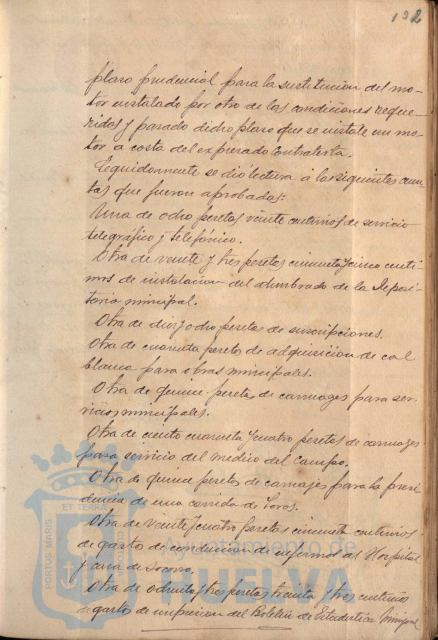 192
plazo prudencial para la sustitucion del mo-
tor instalado por otro de las condiciones reque-
ridas y pasado dicho plazo que se instale un mo-
tor a costa del expresado Contratista.
Seguidamente se dió lectura á las siguientes cuen-
tas que fueron aprobadas:
Una de ocho pesetas veinte centimos de servicio
telegráfico y telefónico.
Otra de veinte y tres pesetas cincuenta y cinco centi-
mos de instalacion del alumbrado de la Deposi-
taria municipal.
Otra de diez y ocho pesetas de suscripciones.
Otra de cuarenta pesetas de adquisicion de cal
blanca para obras municipales.
Otra de quince pesetas de carruages para ser-
vicios municipales.
Otra de ciento cuarenta y cuatro pesetas de carruages
para servicio del medico del Campo.
Otra de quince pesetas de carruajes para la presi-
dencia de una corrida de Toros.
Otra de veinte y cuatro pesetas cincuenta centimos
de gastos de conduccion de enfermos del Hospital
y casa de Socorro.
Otra de ochenta y tres pesetas treinta y tres centimos
de gastos de impresion del Boletin de Estadistica Municipal
PORTUS MARIS ET TERRA
Ayuntamiento de
HUELVA